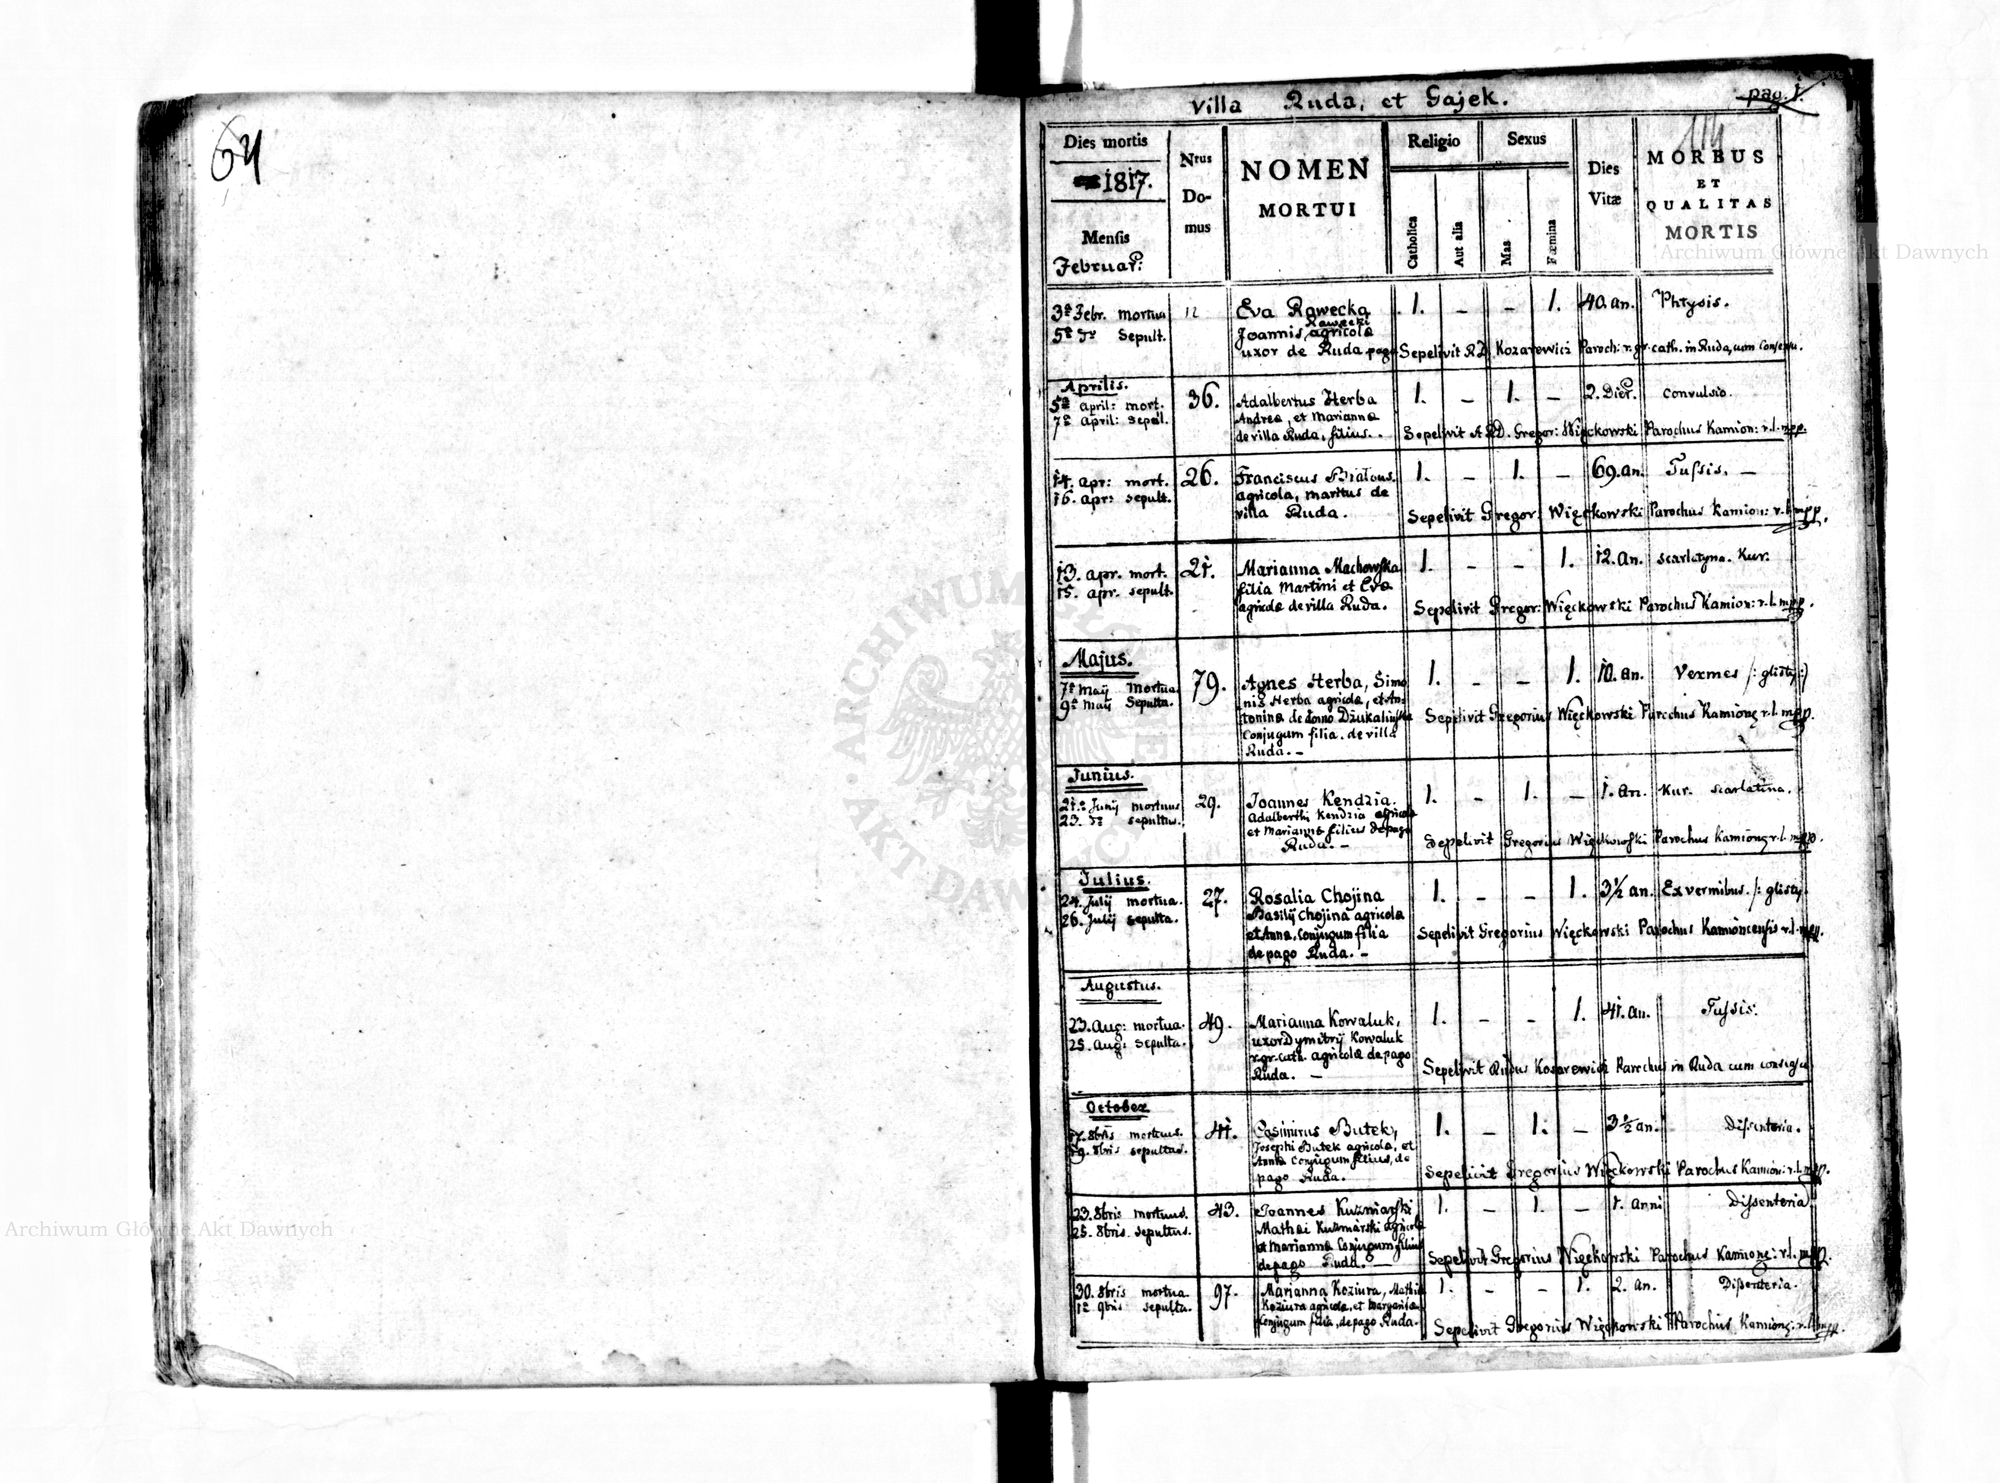 64
Villa Ruda, et Gajek.
pag. 1.
114
Dies mortis
1817.
Mensis
Februar:
Nrus
Do-
mus
NOMEN
MORTUI
Religio
Catholica
Aut alia
Sexus
Mas
Fæmina
Dies
Vitæ
MORBUS
ET
QUALITAS
MORTIS
3a Febr. mortua 12 Eva Rawecka 1. - - 1. 40. an. Phtysis.
5a do Sepult. Joannis Rawecki agricolæ
uxor de Ruda pago Sepelivit RD Kozarewicz Paroch: r. gr. cath. in Ruda, cum Consensu.
Aprilis.
5a april: mort. 36. Adalbertus Herba 1. - 1. - 2. Dier. Convulsio.
7a april: sepul. Andreæ, et Mariannæ
de villa Ruda, filius. Sepelivit A RD. Gregor: Więckowski Parochus Kamion: r. l. mpp.
14. apr: mort. 26. Franciscus Białous. 1. - 1. - 69. an. Tussis. -
16. apr: sepult. agricola, maritus de
villa Ruda. Sepelivit Gregor: Więckowski Parochus Kamion: r. l. mpp.
13. apr. mort. 21. Marianna Machowska 1. - - 1. 12. an. scarlatyna. Kur.
15. apr. sepult. filia Martini et Evæ
agricolæ de villa Ruda. Sepelivit Gregor: Więckowski Parochus Kamion: r. l. mpp.
Majus.
7a Maij Mortua 79. Agnes Herba, Simo- 1. - - 1. 10. an. Vermes /: glisty :/
9a Maij Sepulta. nis Herba agricolæ, et An-
toninæ de domo Dzukalińska Sepelivit Gregorius Więckowski Parochus Kamionc r. l. mpp.
Conjugum filia. de villa
Ruda. -
Junius.
21. Junij mortuus 29. Joannes Kendzia. 1. - 1. - 1. An. Kur. scarlatina.
23. do sepultus. Adalberthi Kendzia agricolæ
et Mariannæ filius de pago Sepelivit Gregorius Więckowski Parochus Kamionc r. l. mpp.
Ruda. -
Julius.
24. Julij mortua. 27. Rosalia Chojina 1. - - 1. 3½ an. Ex vermibus. /: glisty.
26. Julij sepulta. Basilij Chojina agricolæ
et Annæ, Conjugum filia Sepelivit Gregorius Więckowski Parochus Kamioncensis r. l. mpp.
de pago Ruda. -
Augustus.
23. Aug: mortua. 49. Marianna Kowaluk, 1. - - 1. 41. an. Tussis.
25. Aug: sepulta. uxor Dymitrij Kowaluk
r. gr. cath. agricolæ de pago
Ruda. - Sepelivit Kosarewicz Parochus in Ruda cum
October
17. 8bris mortuus. 41. Casimirus Butek, 1. - 1. - 3½ an. Dissenteria.
19. 8bris sepultus. Josephi Butek agricolæ, et
Annæ Conjugum filius, de
pago Ruda. Sepelivit Gregorius Więckowski Parochus Kamion: r. l. mpp.
23. 8bris mortuus. 43. Joannes Kuzmarski 1. - 1. - 1. anni Dissenteria
25. 8bris sepultus. Mathæi Kuzmarski agricolæ
et Mariannæ Conjugum filius
de pago Ruda. - Sepelivit Gregorius Więckowski Parochus Kamionc: r. l. mpp.
30. 8bris mortua. 97. Marianna Koziura, 1. - - 1. 2. an. Dissenteria.
1a 9bris sepulta. Koziura agricolæ, et
Conjugum filia, de pago Ruda. Sepelivit Gregorius Więckowski Parochus Kamionc: r. l. mpp.
Archiwum Główne Akt Dawnych
Archiwum Główne Akt Dawnych
ARCHIWUM GŁÓWNE AKT DAWNYCH